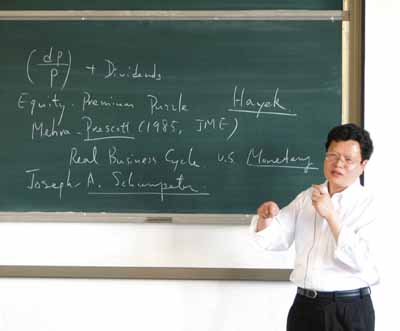 (dp/p) + Dividends
Equity Premium Puzzle Hayek
Mehra. Prescott (1985, JME)
Real Business Cycle v.s. Monetary
Joseph A. Schumpeter.